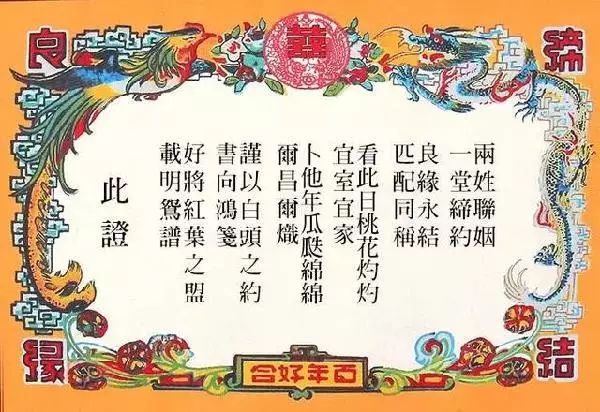 囍
締結
良緣
兩姓聯姻
一堂締約
良緣永結
匹配同稱
看此日桃花灼灼
宜室宜家
卜他年瓜瓞綿綿
爾昌爾熾
謹以白頭之約
書向鴻箋
好將紅葉之盟
載明鴛譜
此證
百年好合